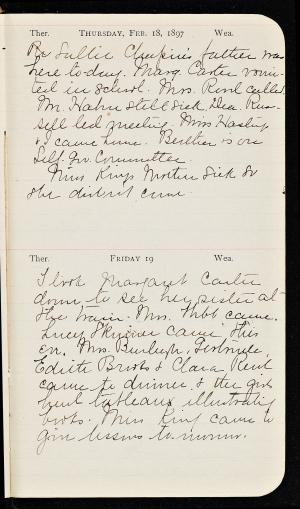 Ther. THURSDAY, FEB. 18, 1897 Wea.
Sallie father was
here to-day. Marg. Carter vomi-
ted in school. Mrs. called.
Mr. Hahn still sick. Dea. Rus-
sell led meeting. Miss
& I came home. Bertha is on
Self Gov. Committee.
Miss King's Mother sick so
she did not come
Ther. FRIDAY 19 Wea.
I took Margaret Carter
down to see her sister at
the train. Mrs. came.
Lucy Skinner came this
ev. Mrs. Burleigh, Gertrude,
Edith & Clara
came to dinner. & the girls
had tableaux illustrating
books. Miss King came to
give lessons to